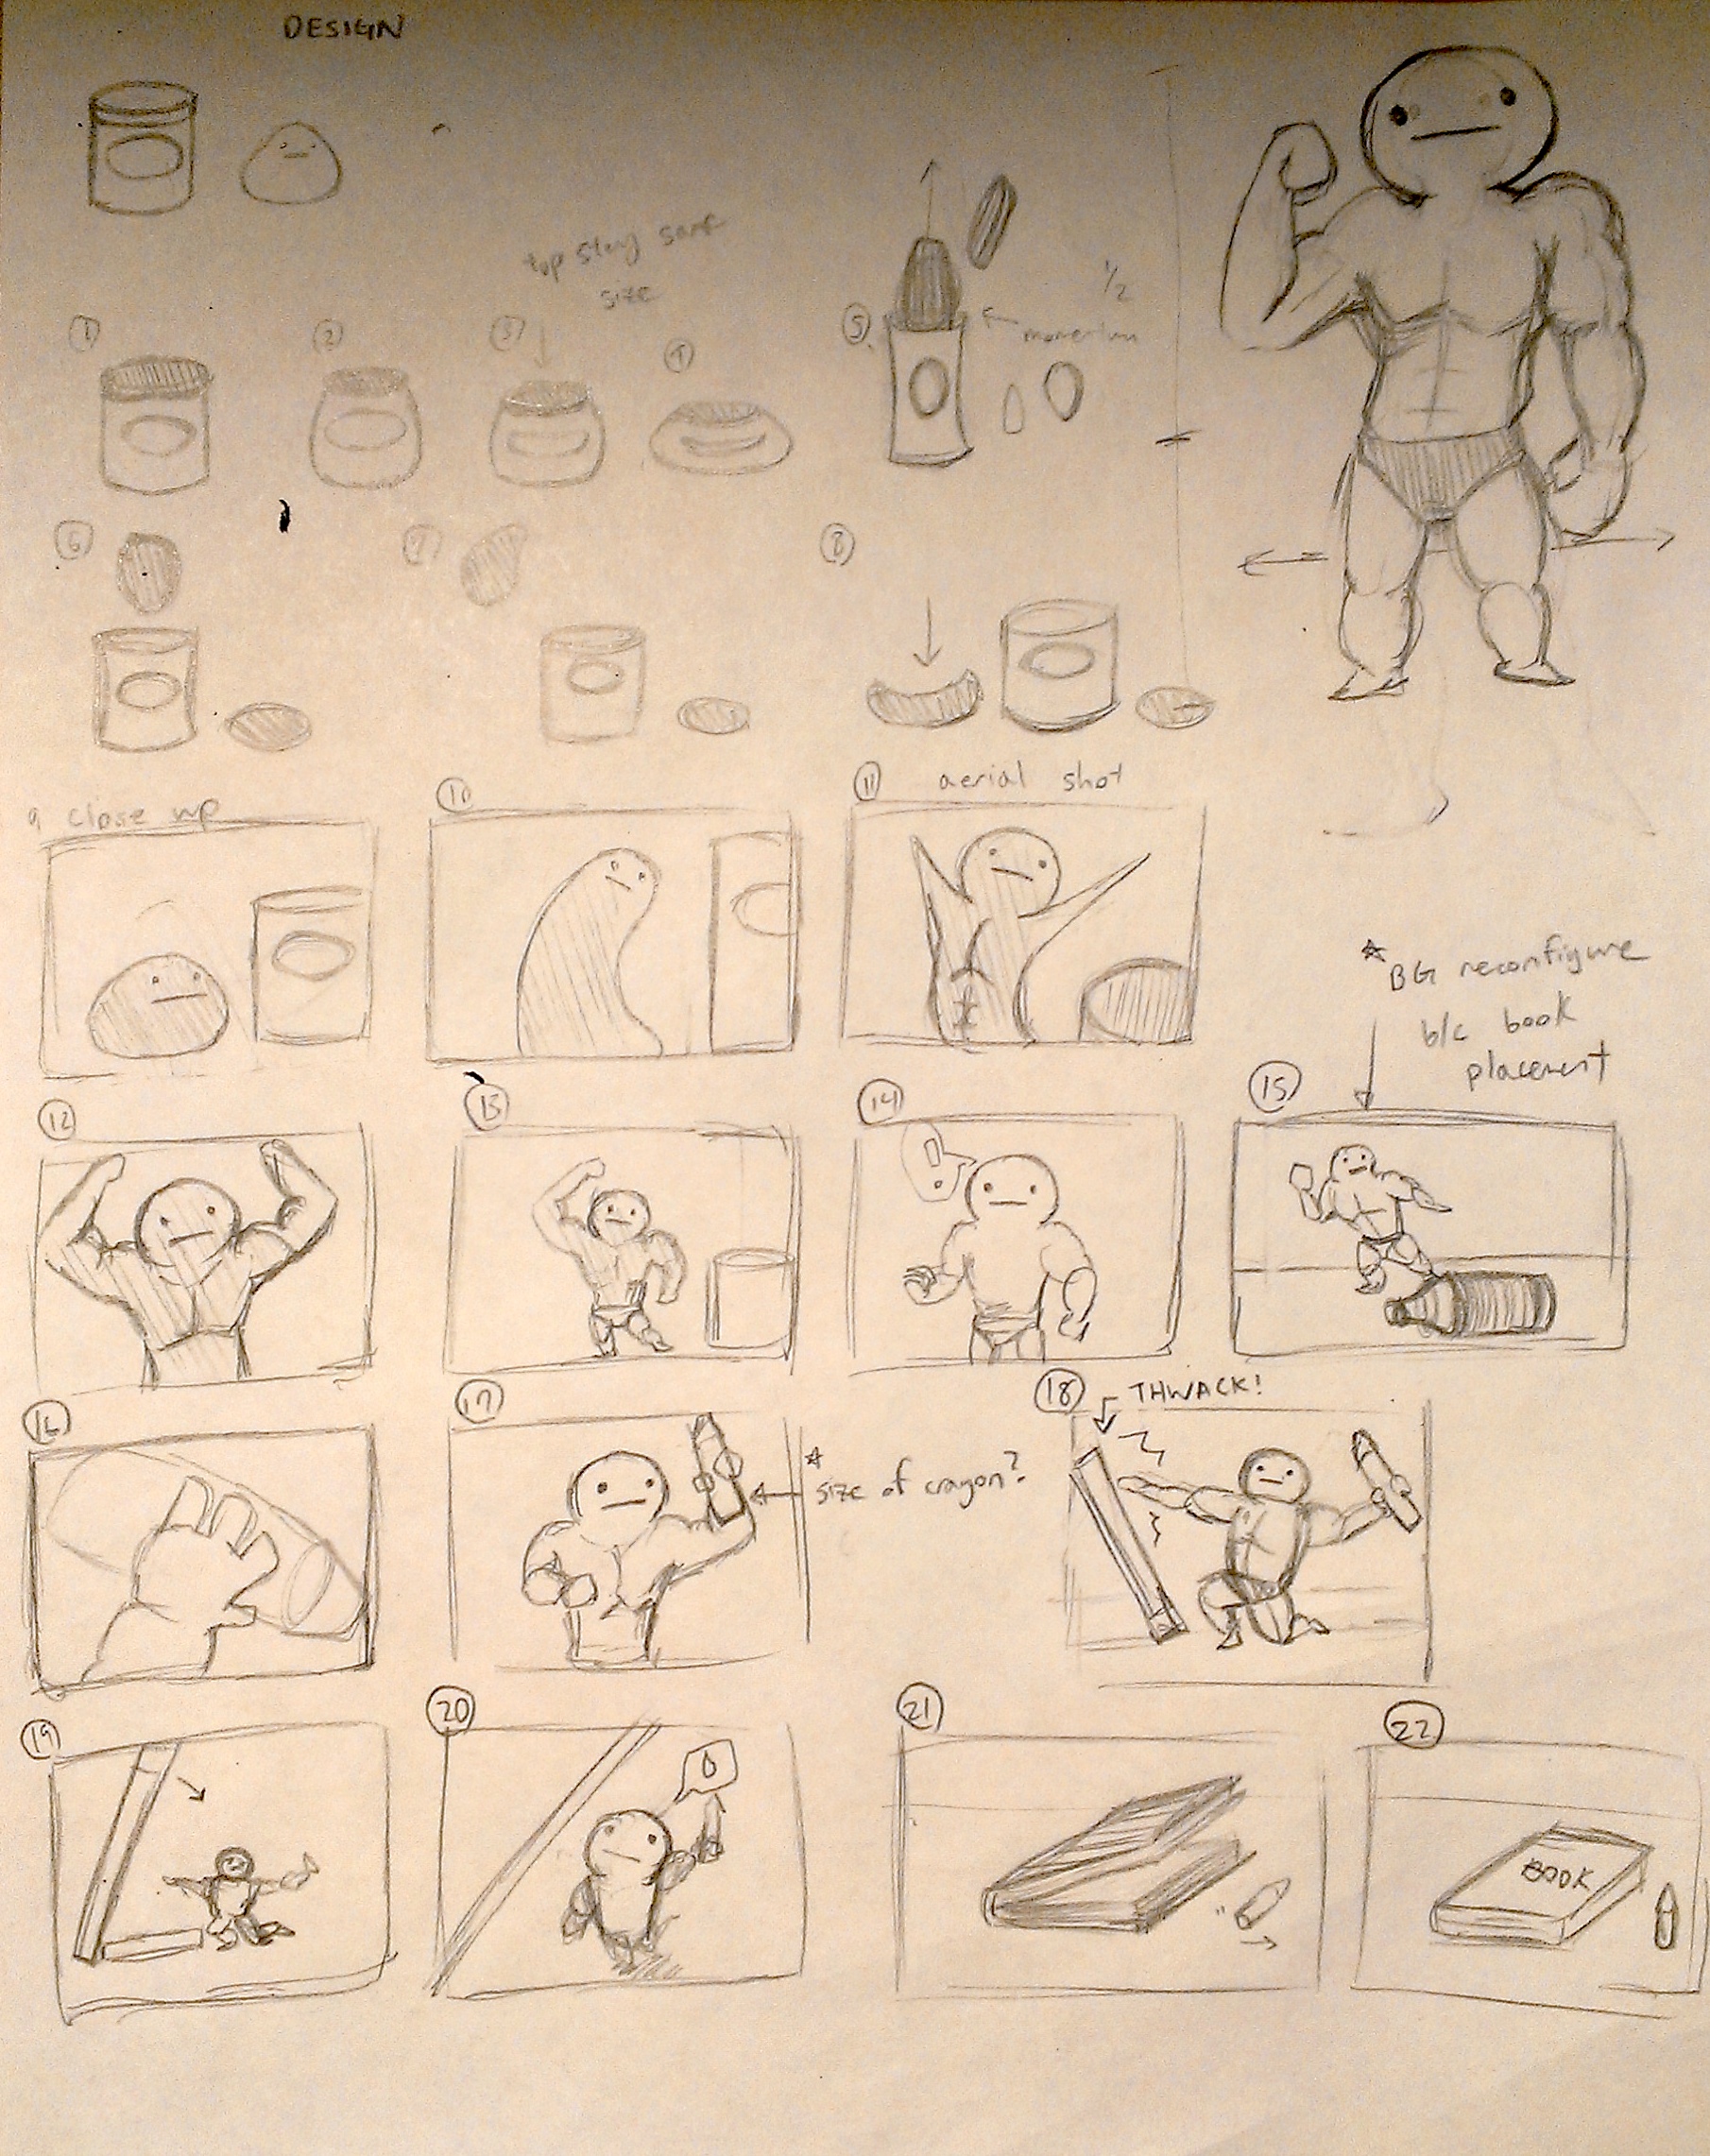 DESIGN
top stay same
size
1
2
3
4
5
1/2
momentum
6
7
8
9 close up
10
11 aerial shot
* BG reconfigure
b/c book
placement
12
13
14
!
15
16
17
* size of crayon?
18
THWACK!
19
20
21
22
BOOK